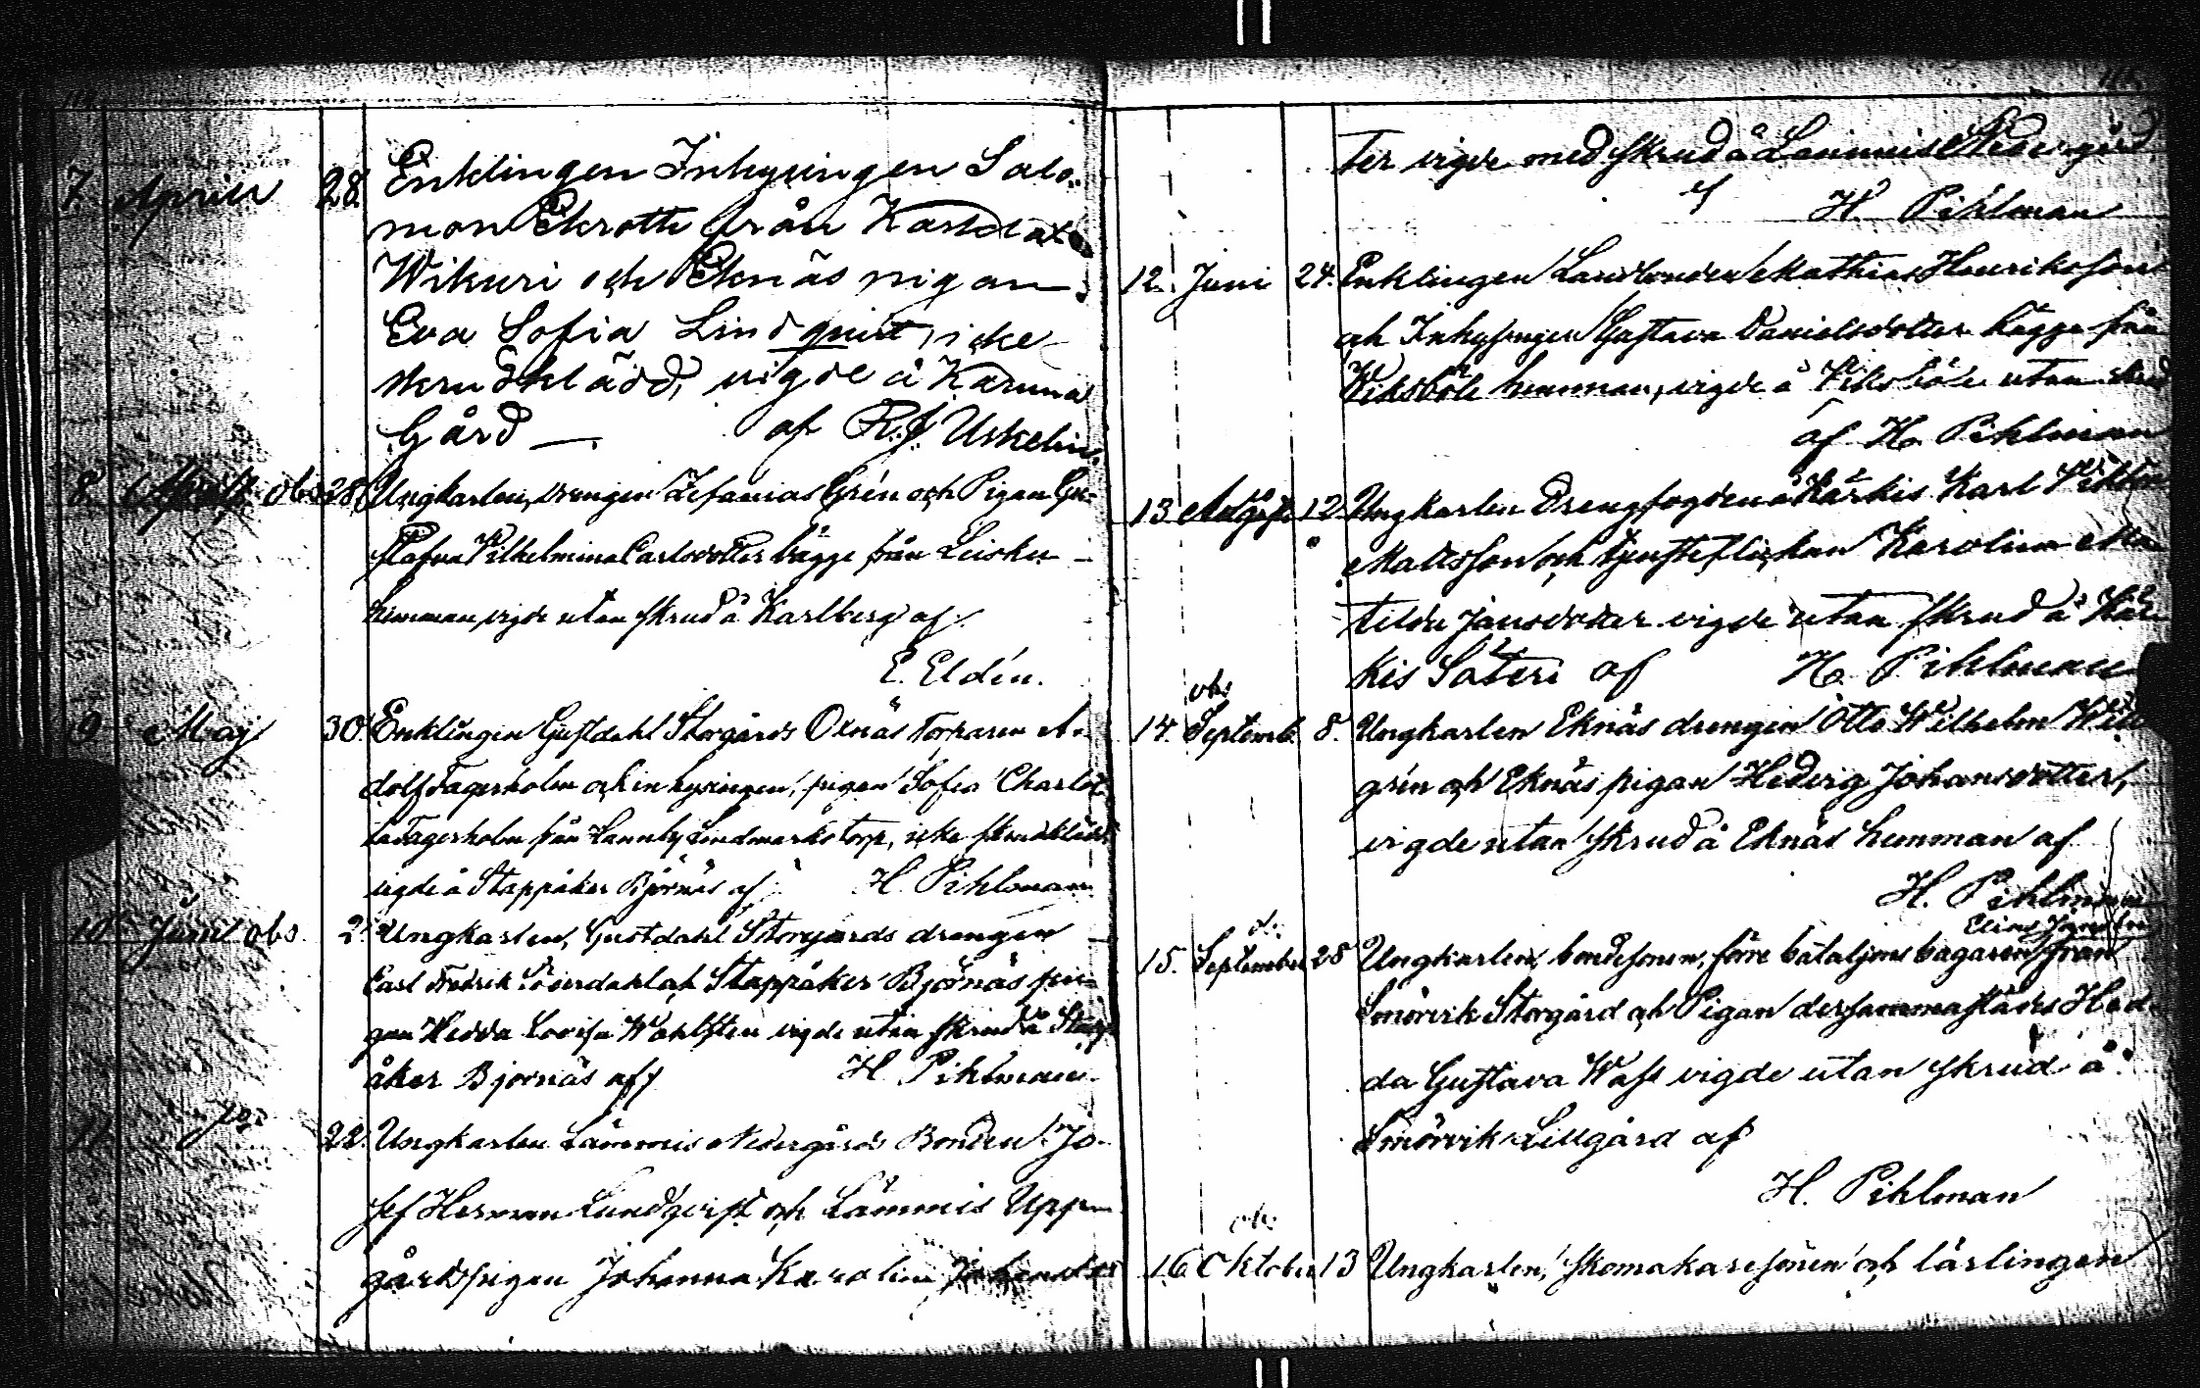 7. April 28. Enklingen Inhysingen Salo-
mon Ekroth från Karlslax
Wikuri och Eknäs pigan
Eva Sofia Lindqvist, icke
skrudklädd, vigde å Karuna
Gård — af R. J. Uskelin.
8. obs 28. Ungkarlen, drengen Zefanias Grén och Pigan Gu-
stafva Wilhelmina Carlsdotter bägge från Leisku
hemman, vigde utan skrud å Karlberg af
E. Eldén.
9. Maj 30. Enklingen Gustdahl Storgårds Oxnäs torparen A-
dolf Fagerholm och inhysingen, pigan Sofia Charlot-
ta Fagerholm från Lannby Lindmarks torp, icke skrudklädd
vigde å Stappåker Björnäs af H. Pihlman
10. Juni obs. 2. Ungkarlen, Gustdahl Storgårds drengen
Carl Fredrik och Stappåker Björnäs pi-
gan Hedda Lovisa Wahlsten vigde utan skrud å Stapp-
åker Björnäs af H. Pihlman.
11. 22. Ungkarlen Lämmis Nedergårds Bonden Jo-
sef Herman Lundqvist och Lämmis Upp-
gårdspigan Johanna Karolina
ter vigde med skrud å Lämmis Nedergård
af H. Pihlman
12. Juni 24. Enklingen Landbonden Mathias Henriksson
och Inhysingen Gustava Danielsdotter bägge från
Viksböle hemman, vigde å Viksböle utan skrud
af H. Pihlman
13 Augusti 12. Ungkarlen Drengfogden å Kärkis Karl Vihlm
Mattsson och tjensteflickan Karolina Ma-
tilda Jansdotter vigde utan skrud å Kär-
kis Säteri af H. Pihlman
obs
14. Septemb. 8. Ungkarlen Eknäs drengen Otto Wilhelm
grén och Eknäs pigan Hedvig Johansdotter,
vigde utan skrud å Eknäs hemman af
H. Pihlman
Elias
15. September 28 Ungkarlen, bondesonen, förre bataljons bagaren från
Smörvik Storgård och Pigan dersammastädes Hed-
da Gustava Wass vigde utan skrud å
Smörvik Lillgård af
H. Pihlman
obs
16. Oktober 13 Ungkarlen, skomakaresonen och lärlingen